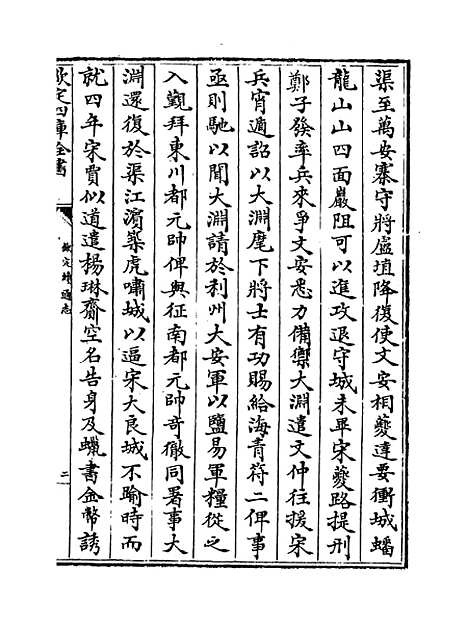 渠至萬安寨守將盧埴降復使文安相夔達要衝城蟠
龍山山四面巖阻可以進攻退守城未畢宋夔路提刑
鄭子發率兵來爭文安悉力備禦大淵遣文仲往援宋
兵宵遁詔以大淵麾下將士有功賜給海青符二俾事
亟則馳以聞大淵請於利州大安軍以鹽易軍糧從之
入覲拜東川都元帥俾與征南都元帥奇徹同署事大
淵還復於渠江濵築虎嘯城以逼宋大良城不踰時而
就四年宋賈似道遣楊琳齎空名告身及蠟書金幣誘
欽定四庫全書
欽定續通志